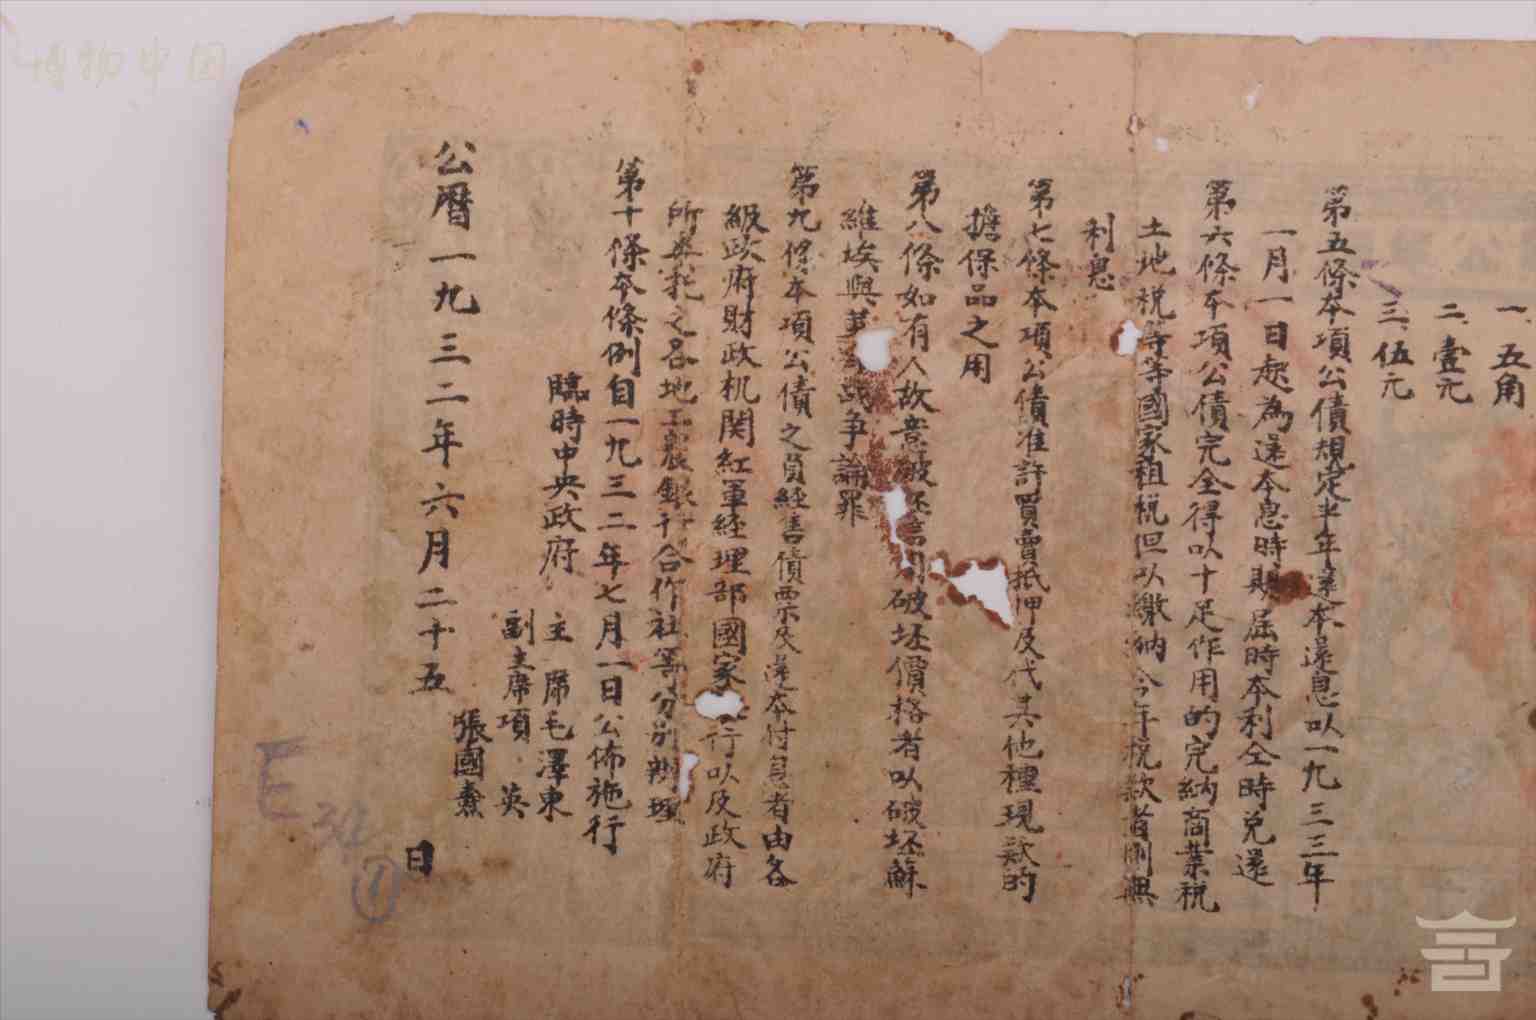 一、五角
二、壹元
三、伍元
第五條本項公債規定半年還本還息以一九三三年
一月一日起為還本息時期屆時本利全時兌還
第六條本項公債完全得以十足作用的完納商業稅
土地稅等等國家租稅但以繳納今年稅款者則無
利息
第七條本項公債准許買賣抵押及代其他種現款的
擔保品之用
第八條如有人故意破坯 破坯價格者以破坯蘇
維埃與 戰争論罪
第九條本項公債之 經售債票及還本付息者由各
級政府財政机関紅軍經理部國家 行以及政府
所 之各地工農銀行合作社等分别辦理
第十條本條例自一九三二年七月一日公佈施行
臨時中央政府 主席毛澤東
副主席項英
張國燾
公曆一九三二年六月二十五 日
E
34
①
博物中国